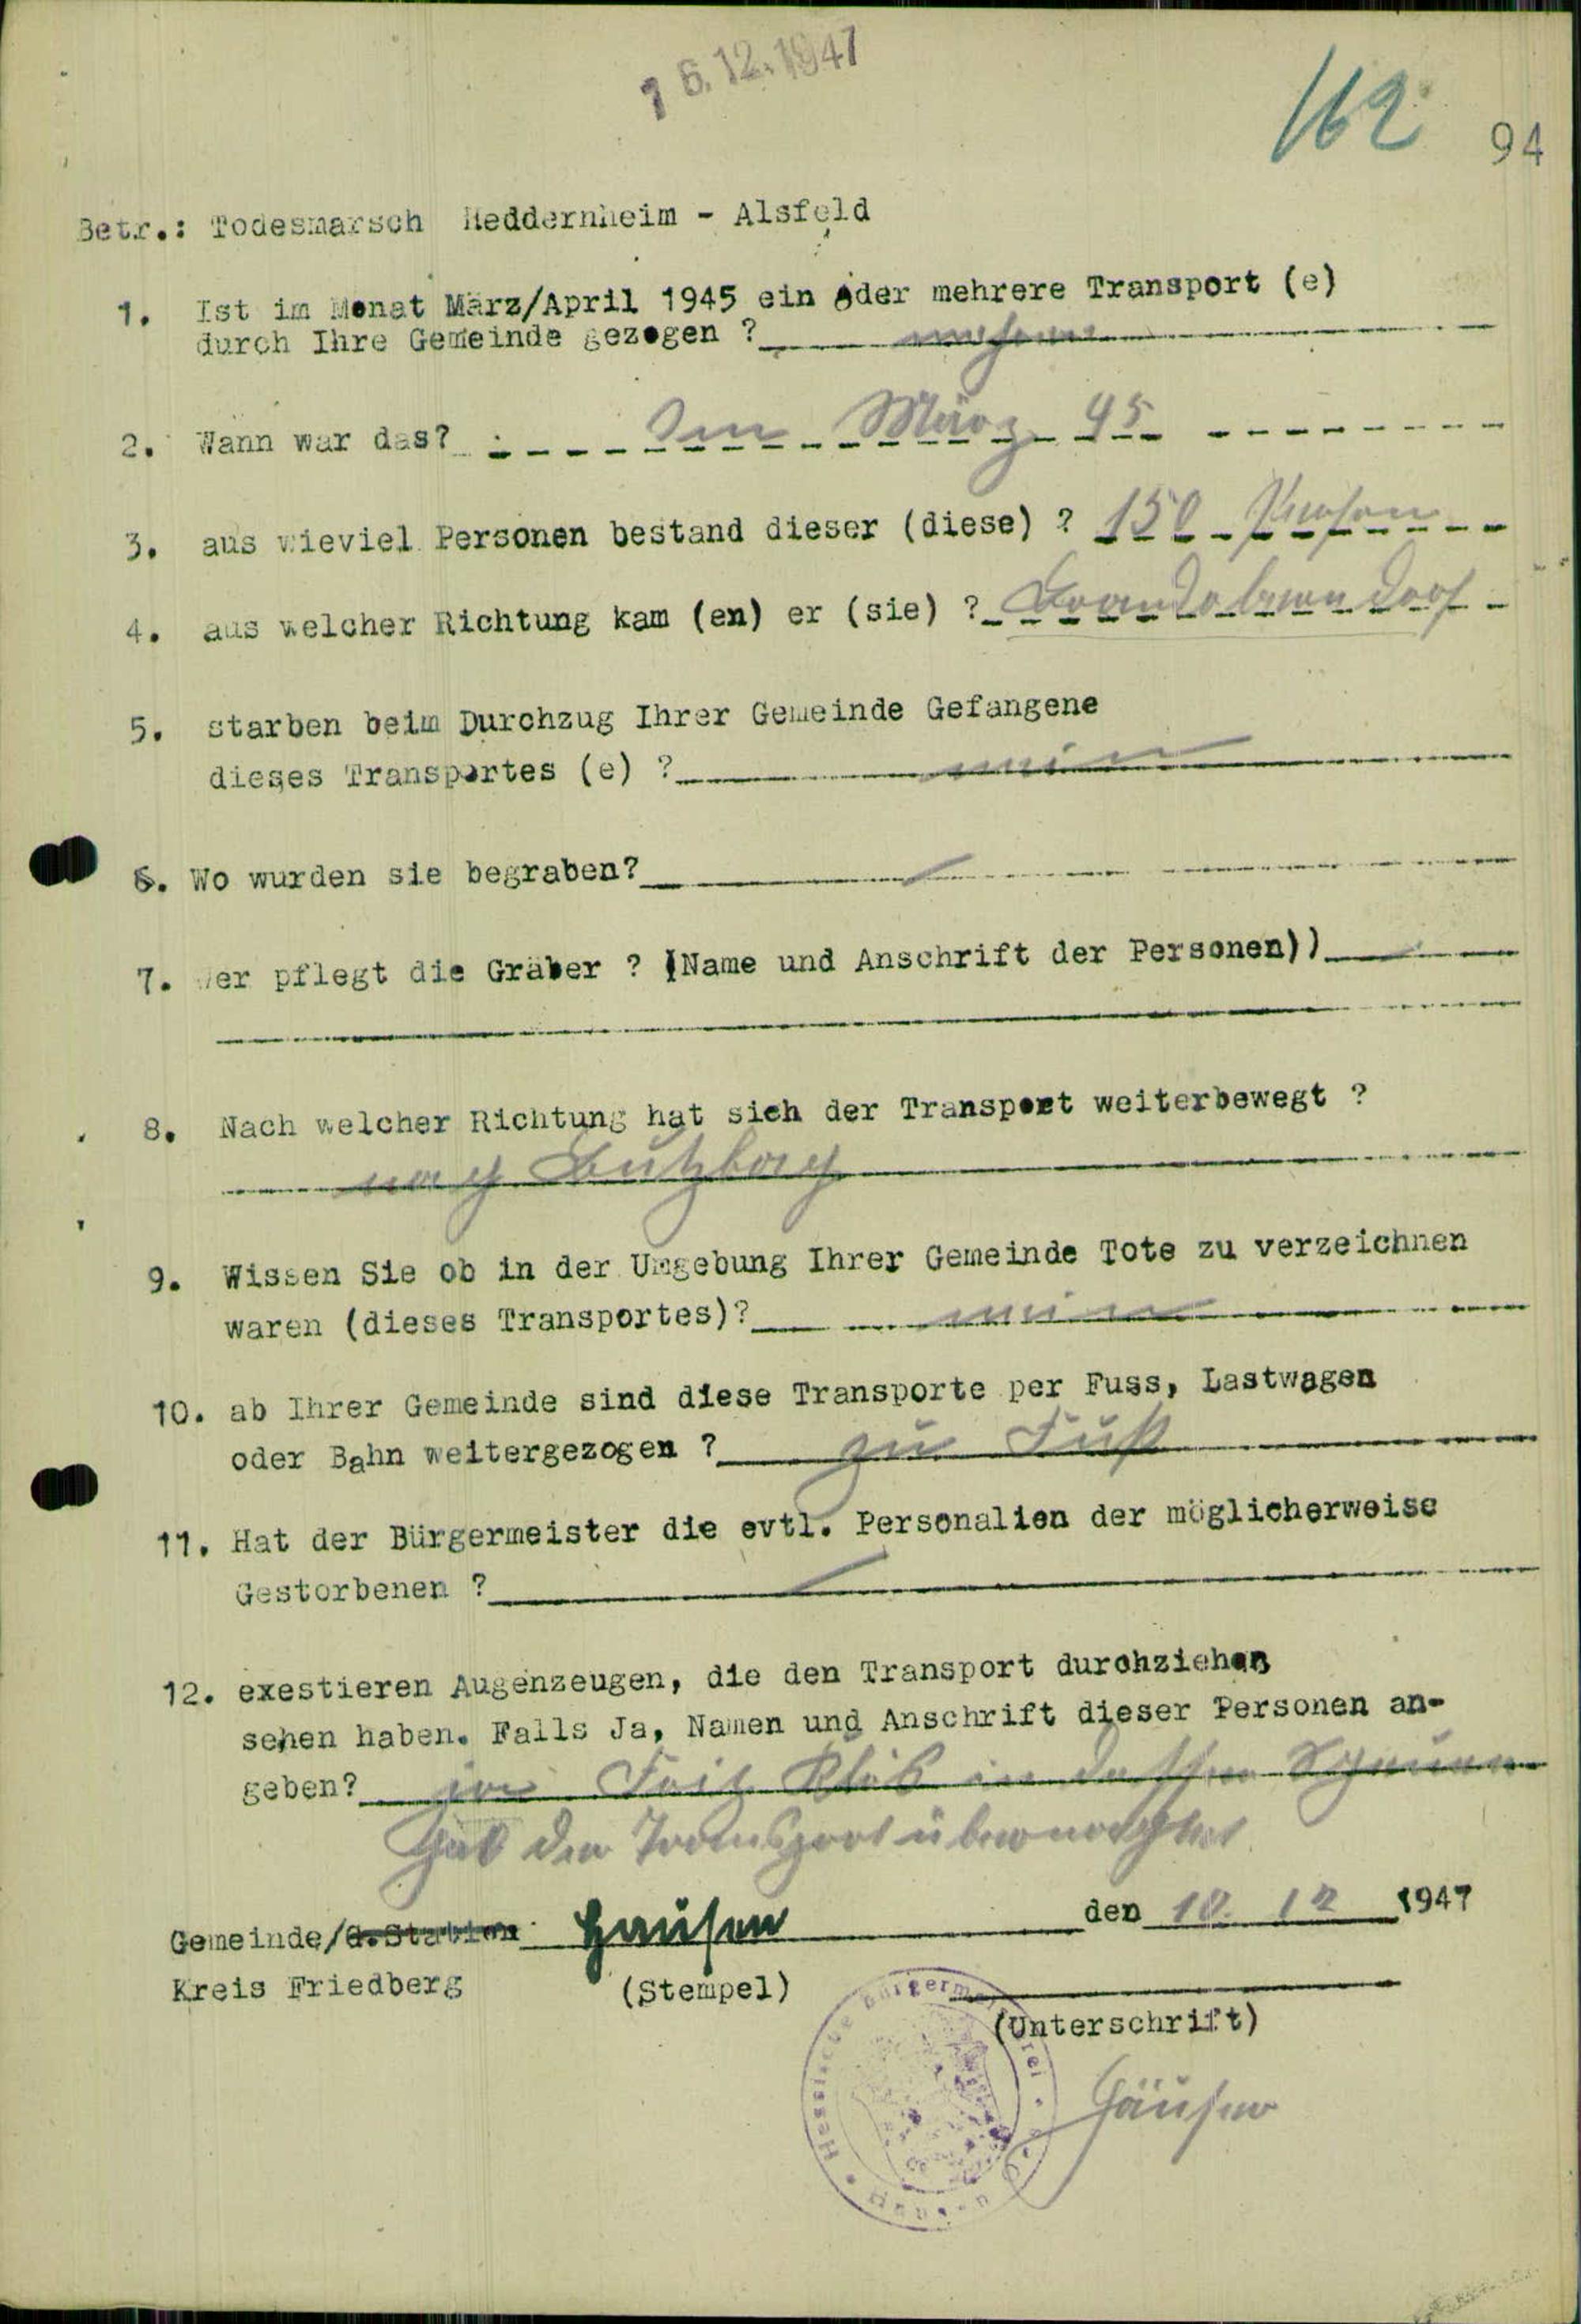 16.12.1947
162 94
Betr.: Todesmarsch Heddernheim - Alsfeld
1. Ist im Monat März/April 1945 ein oder mehrere Transport (e)
durch Ihre Gemeinde gezogen ?
2. Wann war das? Im März 45
3. aus wieviel Personen bestand dieser (diese) ? 150 Personen
4. aus welcher Richtung kam (en) er (sie) ? Brandoberndorf
5. starben beim Durchzug Ihrer Gemeinde Gefangene
dieses Transportes (e) ? nein
6. Wo wurden sie begraben? /
7. Wer pflegt die Gräber ? (Name und Anschrift der Personen))
8. Nach welcher Richtung hat sich der Transport weiterbewegt ?
nach Butzbach
9. Wissen Sie ob in der Umgebung Ihrer Gemeinde Tote zu verzeichnen
waren (dieses Transportes)? nein
10. ab Ihrer Gemeinde sind diese Transporte per Fuss, Lastwagen
oder Bahn weitergezogen ? zu Fuß
11. Hat der Bürgermeister die evtl. Personalien der möglicherweise
Gestorbenen ? /
12. exestieren Augenzeugen, die den Transport durchziehen
sehen haben. Falls Ja, Namen und Anschrift dieser Personen an-
geben? ja in dessen Scheune
hat der Transport übernachtet
Gemeinde/G.Station Hausen den 10. 12 1947
Kreis Friedberg (Stempel)
(Unterschrift)
Hessische Bürgermeisterei
Häuser